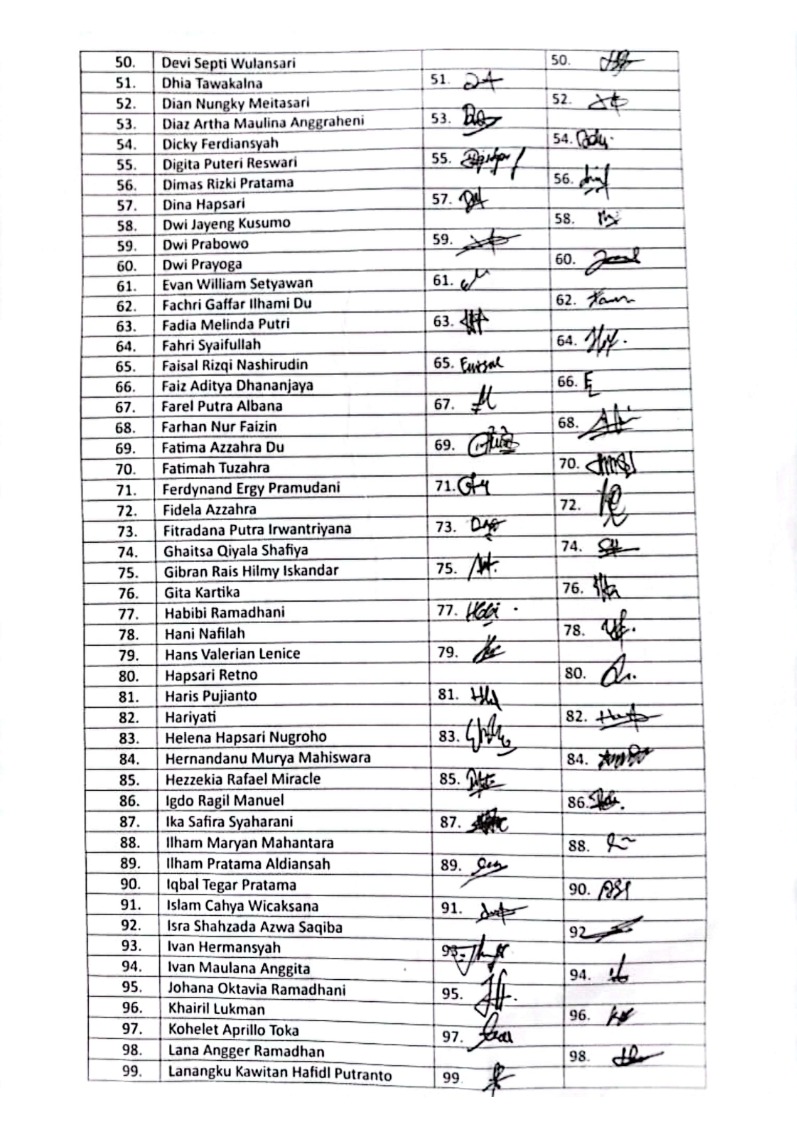 50. Devi Septi Wulansari 50.
51. Dhia Tawakalna 51.
52. Dian Nungky Meitasari 52.
53. Diaz Artha Maulina Anggraheni 53.
54. Dicky Ferdiansyah 54.
55. Digita Puteri Reswari 55.
56. Dimas Rizki Pratama 56.
57. Dina Hapsari 57.
58. Dwi Jayeng Kusumo 58.
59. Dwi Prabowo 59.
60. Dwi Prayoga 60.
61. Evan William Setyawan 61.
62. Fachri Gaffar Ilhami Du 62.
63. Fadia Melinda Putri 63.
64. Fahri Syaifullah 64.
65. Faisal Rizqi Nashirudin 65.
66. Faiz Aditya Dhananjaya 66.
67. Farel Putra Albana 67.
68. Farhan Nur Faizin 68.
69. Fatima Azzahra Du 69.
70. Fatimah Tuzahra 70.
71. Ferdynand Ergy Pramudani 71.
72. Fidela Azzahra 72.
73. Fitradana Putra Irwantriyana 73.
74. Ghaitsa Qiyala Shafiya 74.
75. Gibran Rais Hilmy Iskandar 75.
76. Gita Kartika 76.
77. Habibi Ramadhani 77.
78. Hani Nafilah 78.
79. Hans Valerian Lenice 79.
80. Hapsari Retno 80.
81. Haris Pujianto 81.
82. Hariyati 82.
83. Helena Hapsari Nugroho 83.
84. Hernandanu Murya Mahiswara 84.
85. Hezzekia Rafael Miracle 85.
86. Igdo Ragil Manuel 86.
87. Ika Safira Syaharani 87.
88. Ilham Maryan Mahantara 88.
89. Ilham Pratama Aldiansah 89.
90. Iqbal Tegar Pratama 90.
91. Islam Cahya Wicaksana 91.
92. Isra Shahzada Azwa Saqiba 92
93. Ivan Hermansyah 93.
94. Ivan Maulana Anggita 94.
95. Johana Oktavia Ramadhani 95.
96. Khairil Lukman 96.
97. Kohelet Aprillo Toka 97.
98. Lana Angger Ramadhan 98.
99. Lanangku Kawitan Hafidl Putranto 99